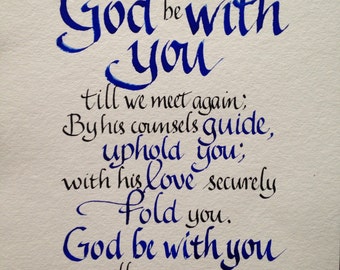 God be with
you
till we meet again;
By his counsels guide,
uphold you;
with his love securely
fold you.
God be with you